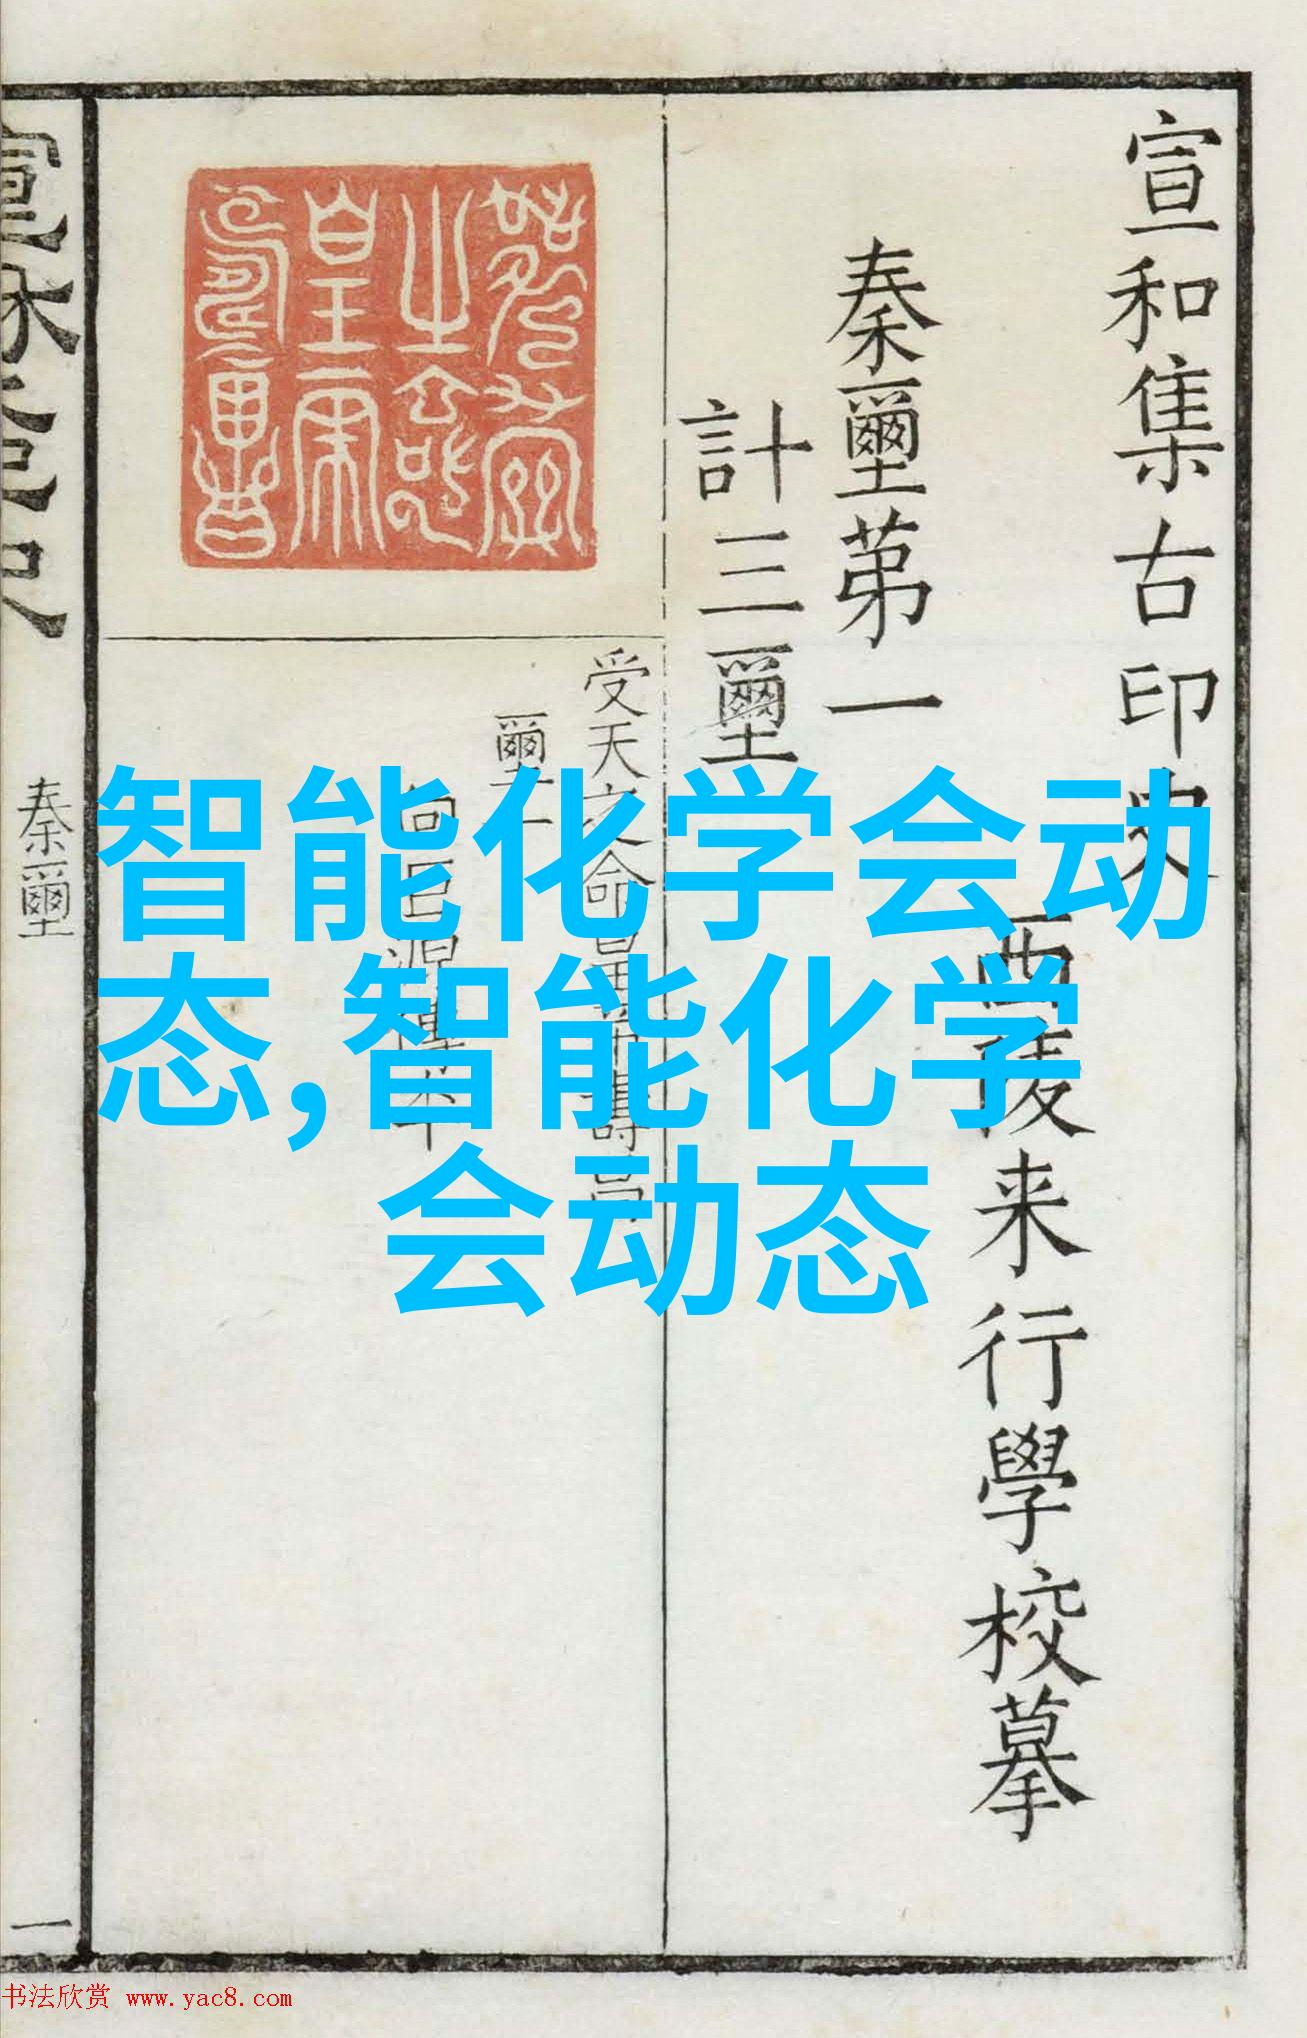 宣和集古印史
西陵来行學校摹
秦璽第一
計三璽
受天之命皇帝壽昌
璽一
向巨源傳本
秦璽
一
智能化学会动
态,智能化学
会动态
书法欣赏 www.yac8.com